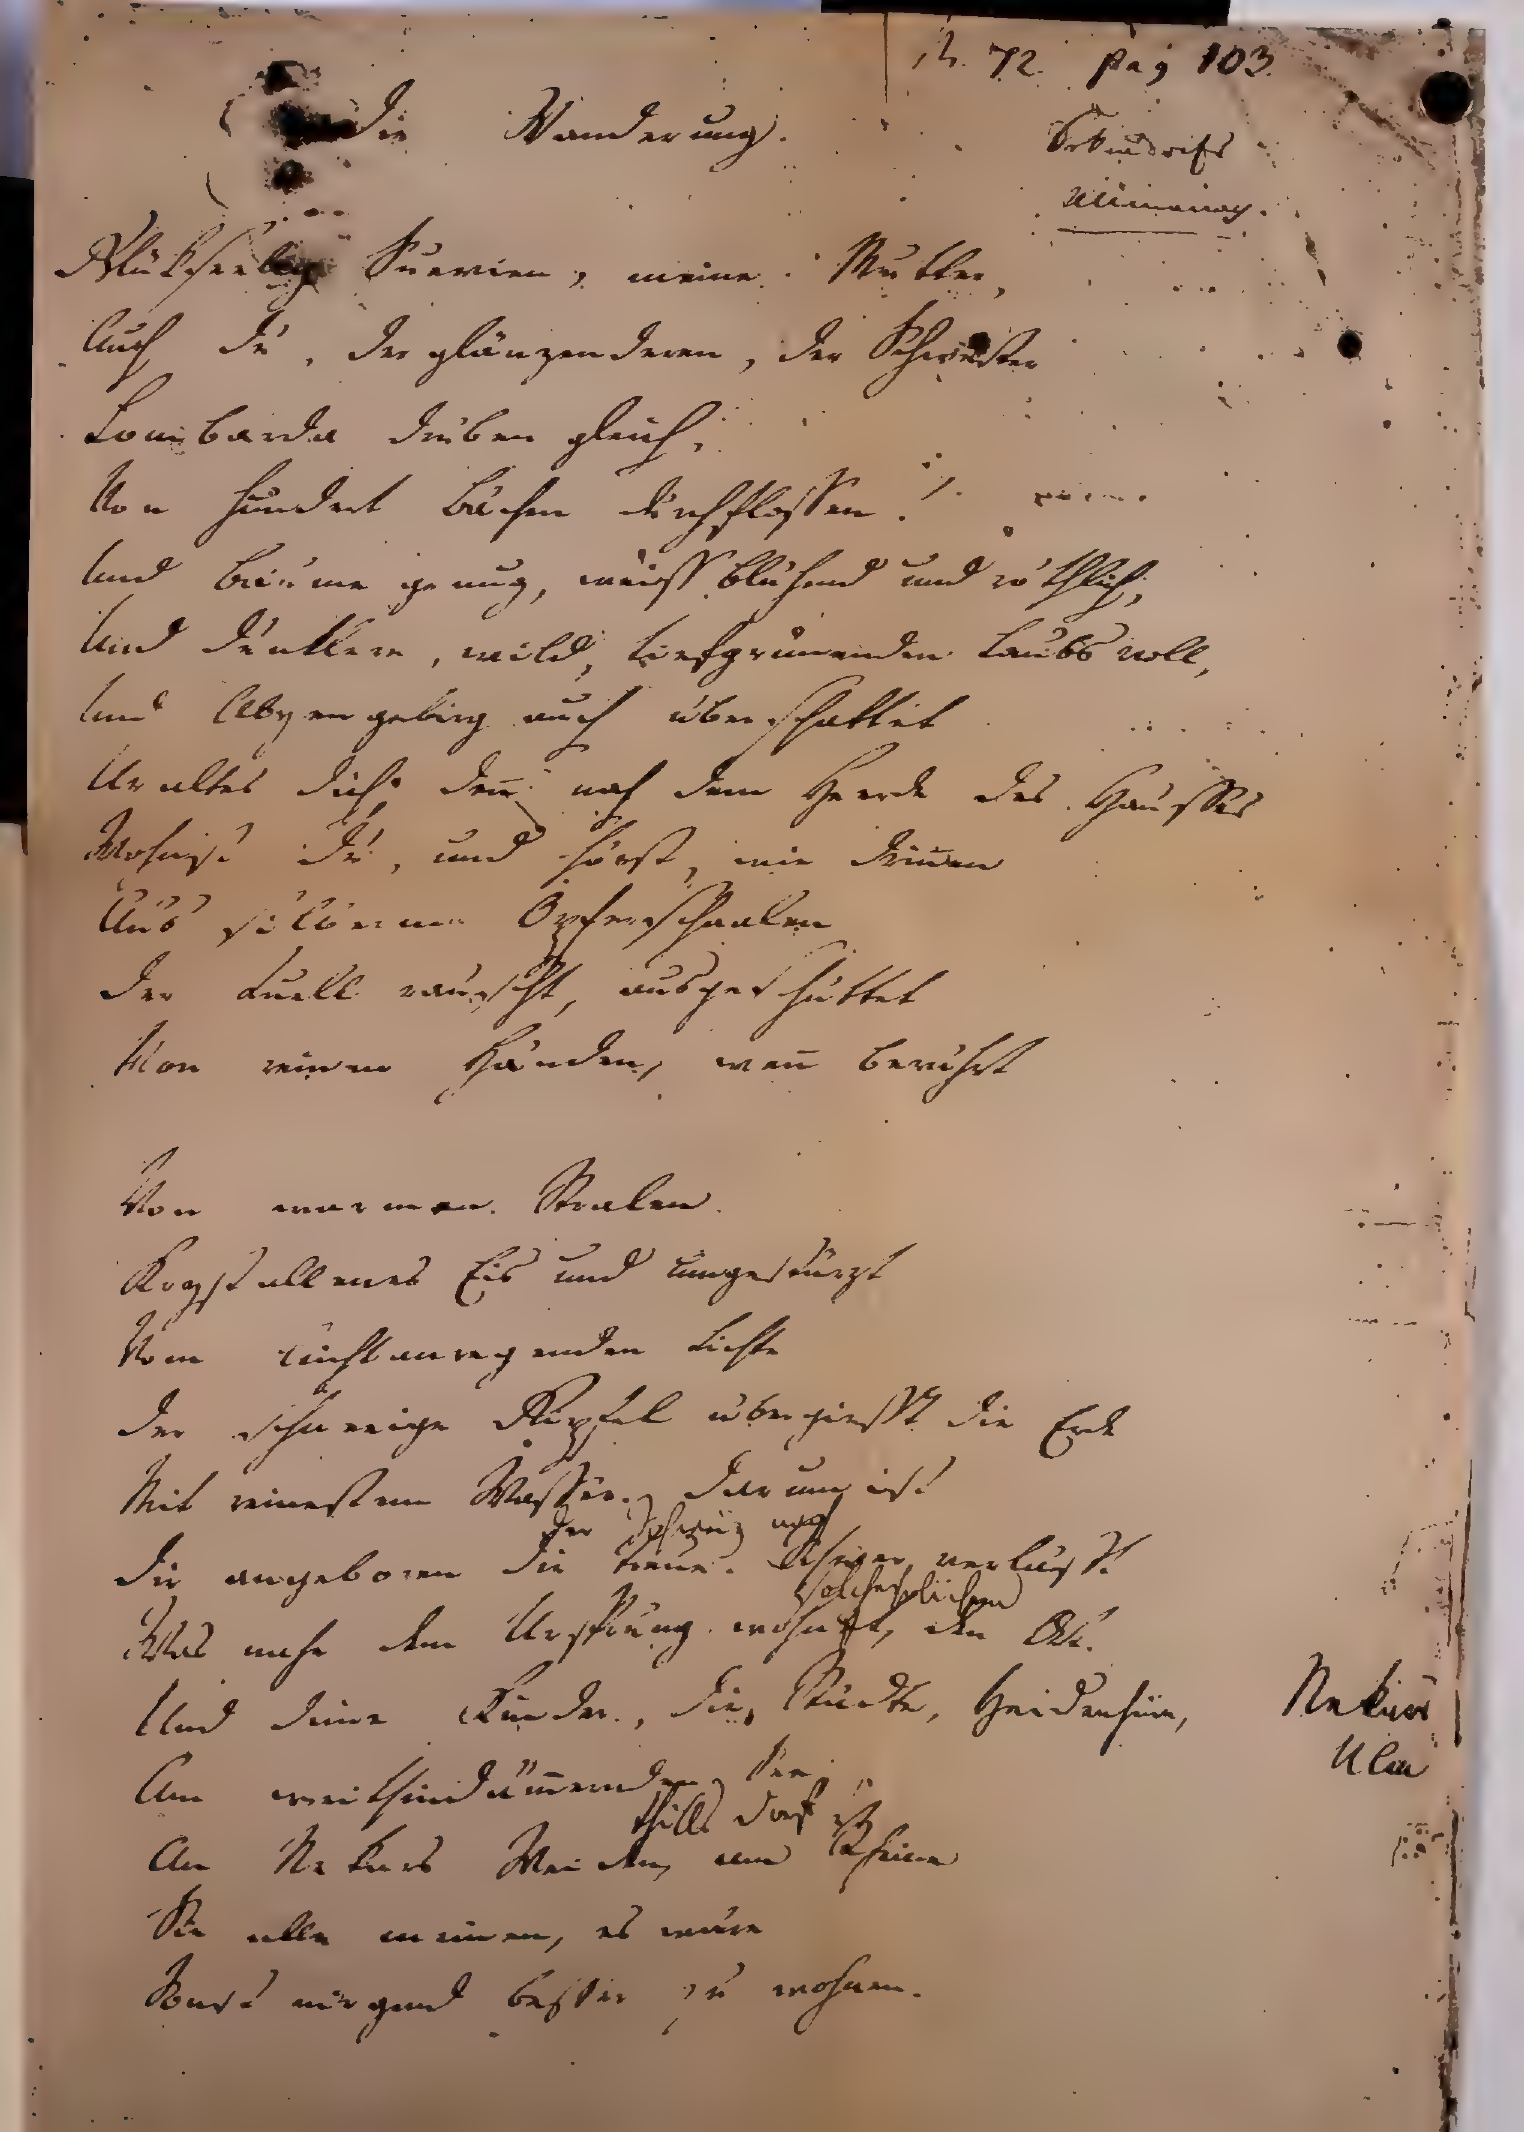 72. pag 103.
Die Wanderung.
Glükseelig Suevien, meine Mutter,
Auch du, der glänzenderen, der Schwester
Lombarda drüben gleich,
Von hundert Bächen durchflossen!
Und Bäume genug, weissblühend und röthlich,
Und dunklere, wild, tiefgrünenden Laubs voll,
Und Alpengebirg auch überschattet
Uraltes dich; deñ nah dem Heerde des Haußes
Wohnst du, und hörst, wie drinnen
Aus silbernen Opferschaalen
Der Quell rauscht, ausgeschüttet
Von reinen Händen, weñ berührt
Von warmen Stralen
Krystallenes Eis und umgestürzt
Vom leichtanregenden Lichte
Der schneeige Gipfel übergiesst die Erde
Mit reinestem Wasser. Darum ist
Der Schweiz
Dir angeboren die Treue. Schwer verlässt
Was nahe dem Ursprung wohnet, den Ort.
Und deine Kinder, die Städte,
Nekars
Ulm
Am weithindäm̃ernden See,
An Nekars Weiden, am Rheine
Sie alle meinen, es wäre
Sonst nirgend besser zu wohnen.